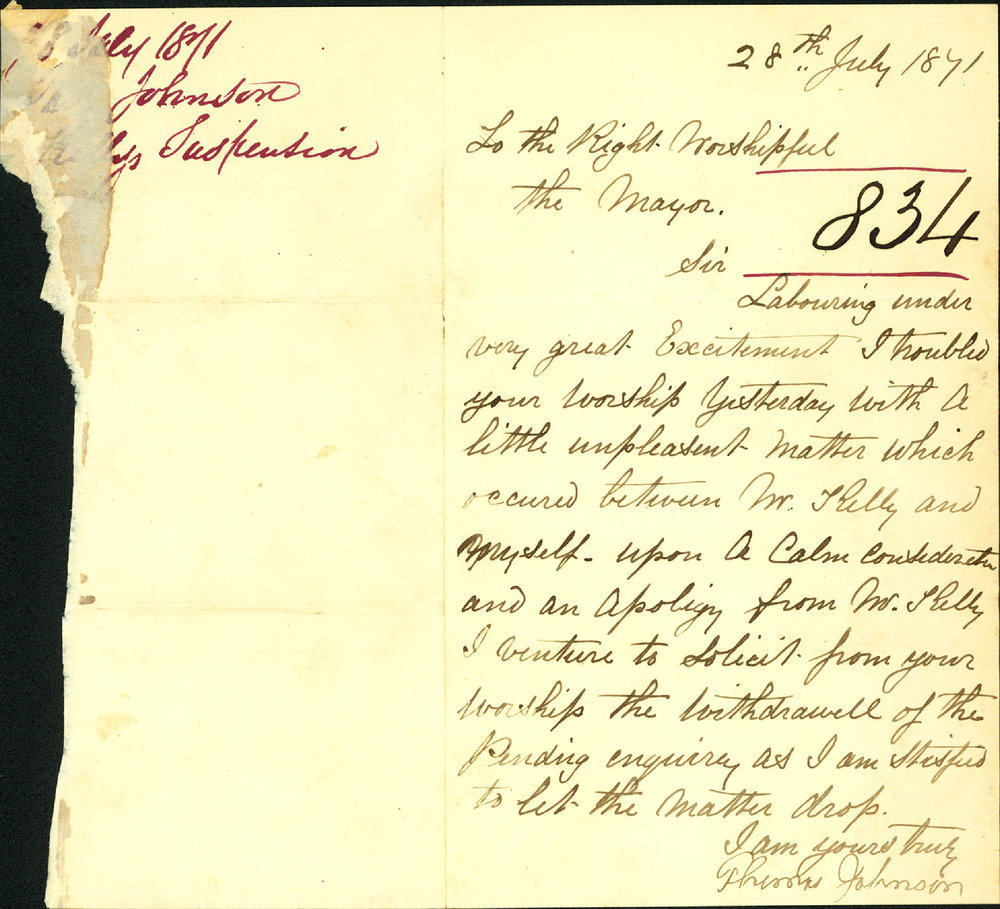 July 1871
Johnson
Suspension
28th July 1871
To the Right Worshipful
the Mayor.
834
Sir
Labouring under
very great Excitement I troubled
your Worship Yesterday with A
little unpleasent Matter which
occured between Mr. Kelly and
Myself - upon A Calm Consideration
and an Apoligy from Mr. Kelly
I venture to Solicit from your
Worship the Withdrawell of the
Pending enquirey as I am Stisfied
to let the Matter drop.
I am yours truly
Thomas Johnson